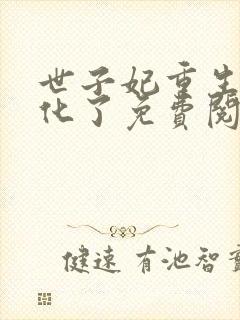 世子妃重生
化了免費閱
健速 有池智